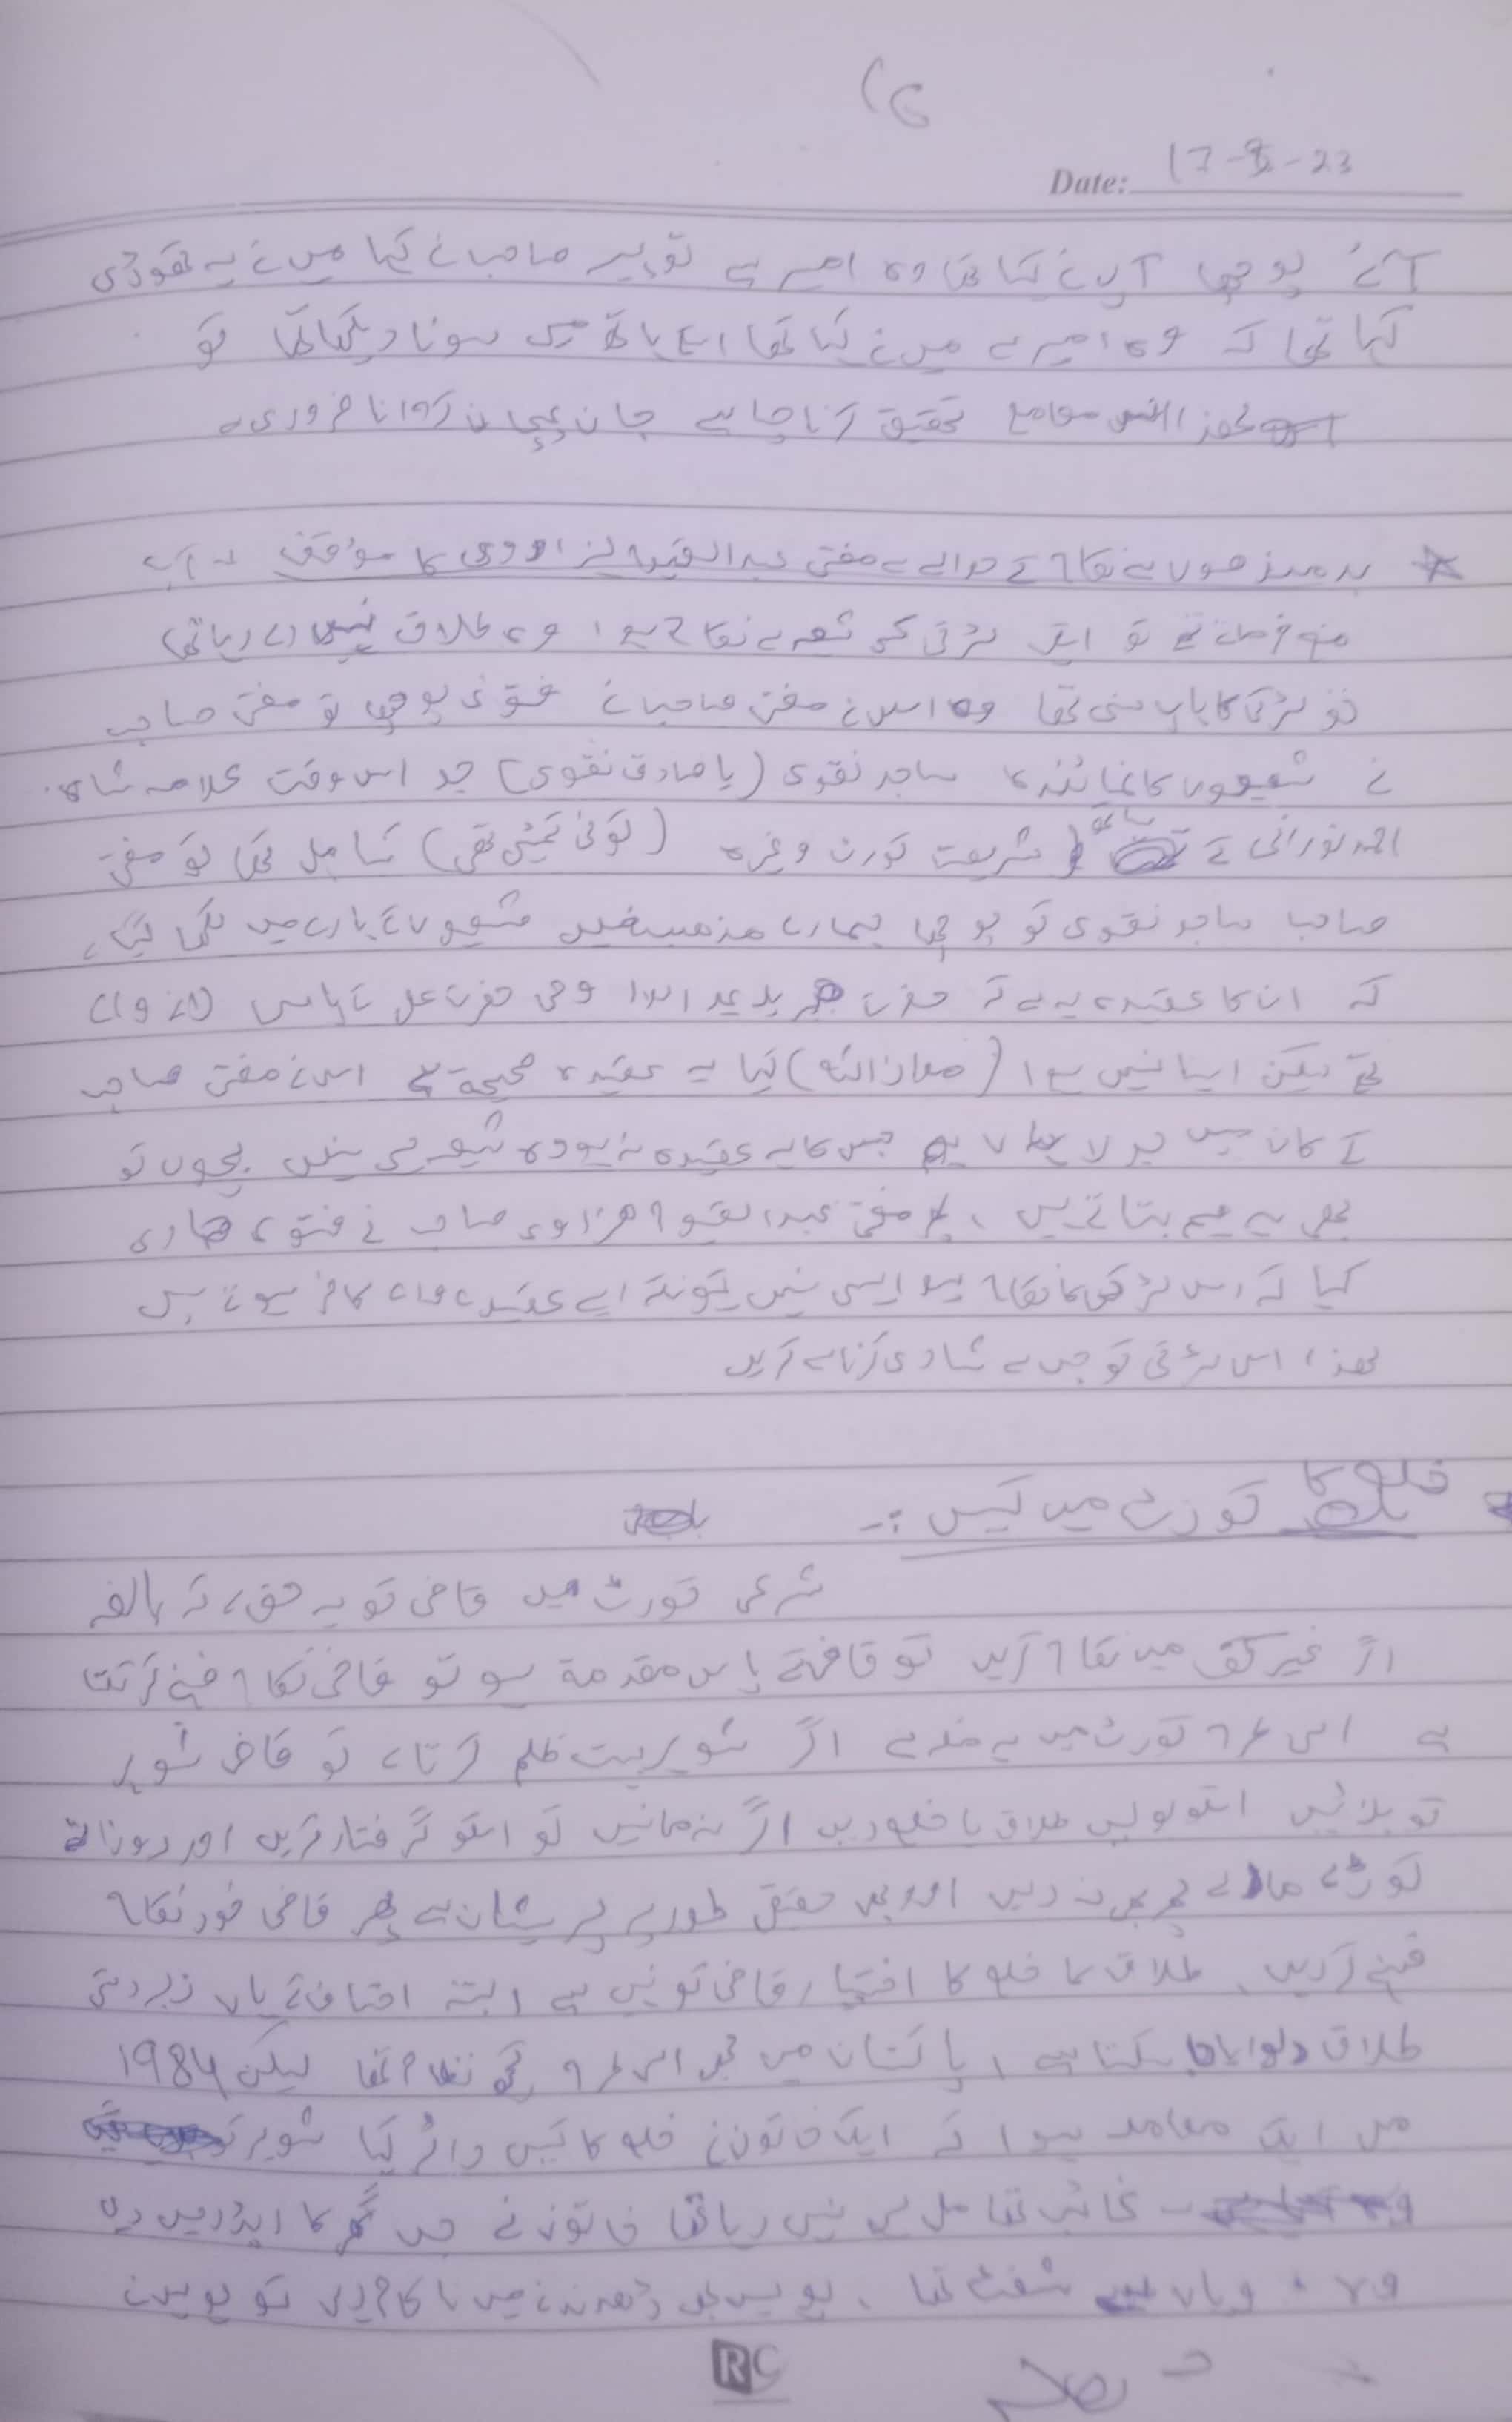 Date: 17-8-23
آئے پوچھا آپ نے کہا تھا وہ امیر ہے تو پیر صاحب نے کہا میں نے یہ تھوڑی
کہا تھا کہ وہ امیر ہے میں نے کہا تھا اسکے ہاتھ میں سونا دیکھا تھا تو
لھذا تحقیق کرنا چاہیے جان پہچان کروانا ضروری ہے
بد مذھبوں سے نکاح کے حوالے سے مفتی عبدالقیوم ہزاروی کا مؤقف کہ آپ
منع فرماتے تھے تو ایک لڑکی کسی شیعہ سے نکاح ہوا وہ طلاق نہیں دے رہا تھا
لڑکی کا باپ سنی تھا وہ اس نے مفتی صاحب نے فتوی پوچھا تو مفتی صاحب
نے شیعوں کا نمائندہ ساجد نقوی (یا صادق نقوی) جو اس وقت علامہ شاہ
احمد نورانی کے ساتھ شریعت کورٹ وغیرہ (کوئی کمیٹی تھی) شامل تھا تو مفتی
صاحب ساجد نقوی کو پوچھا ہمارے مذھب میں شیعوں کے بارے میں لکھا گیا ہے
کہ ان کا عقیدہ یہ ہے کہ حضرت وحی حضرت علی کے پاس
تھے لیکن ایسا نہیں ہوا (معاذ اللہ) کیا یہ عقیدہ صحیح ہے اس نے مفتی صاحب
کے کان میں بولا جس کا یہ عقیدہ نہ ہو وہ شیعہ ہی نہیں بچوں کو
بھی یہ ہم بتاتے ہیں، پھر مفتی عبدالقیوم ہزاروی صاحب نے فتوی جاری
کیا کہ اس لڑکی کا نکاح ہوا ہی نہیں کیونکہ ایسے عقیدے والے کافر ہوتے ہیں
لھذا اس لڑکی کو جس سے شادی کرنا ہے کریں
خلع کا کورٹ میں کیس :-
شرعی کورٹ میں قاضی کو یہ حق ہے کہ بالغہ
اگر غیر کفو میں نکاح کریں تو قاضی کے پاس مقدمہ ہو تو قاضی نکاح فسخ کر سکتا
ہے اسی طرح کورٹ میں یہ مسئلہ ہے اگر شوہر بہت ظلم کرتا ہے تو قاضی شوہر
کو بلائیں اسکو بولیں طلاق یا خلع دیں اگر نہ مانیں تو اسکو گرفتار کریں اور روزانہ
کوڑے مارے پھر بھی نہ دیں اور بیوی حقیقی طور پر پریشان ہے پھر قاضی خود نکاح
فسخ کریں، طلاق یا خلع کا اختیار قاضی کو نہیں ہے البتہ احناف کے ہاں زبردستی
طلاق دلوایا جا سکتا ہے، پاکستان میں بھی اسی طرح کچھ نظام تھا لیکن 1984
میں ایک معاملہ ہوا کہ ایک خاتون نے خلع کا کیس دائر کیا شوہر
غائب تھا مل ہی نہیں رہا تھا خاتون نے جس گھر کا ایڈریس دیا
وہ وہاں سے شفٹ تھا، پولیس بھی ڈھونڈنے میں ناکام رہی تو پولیس نے
RC